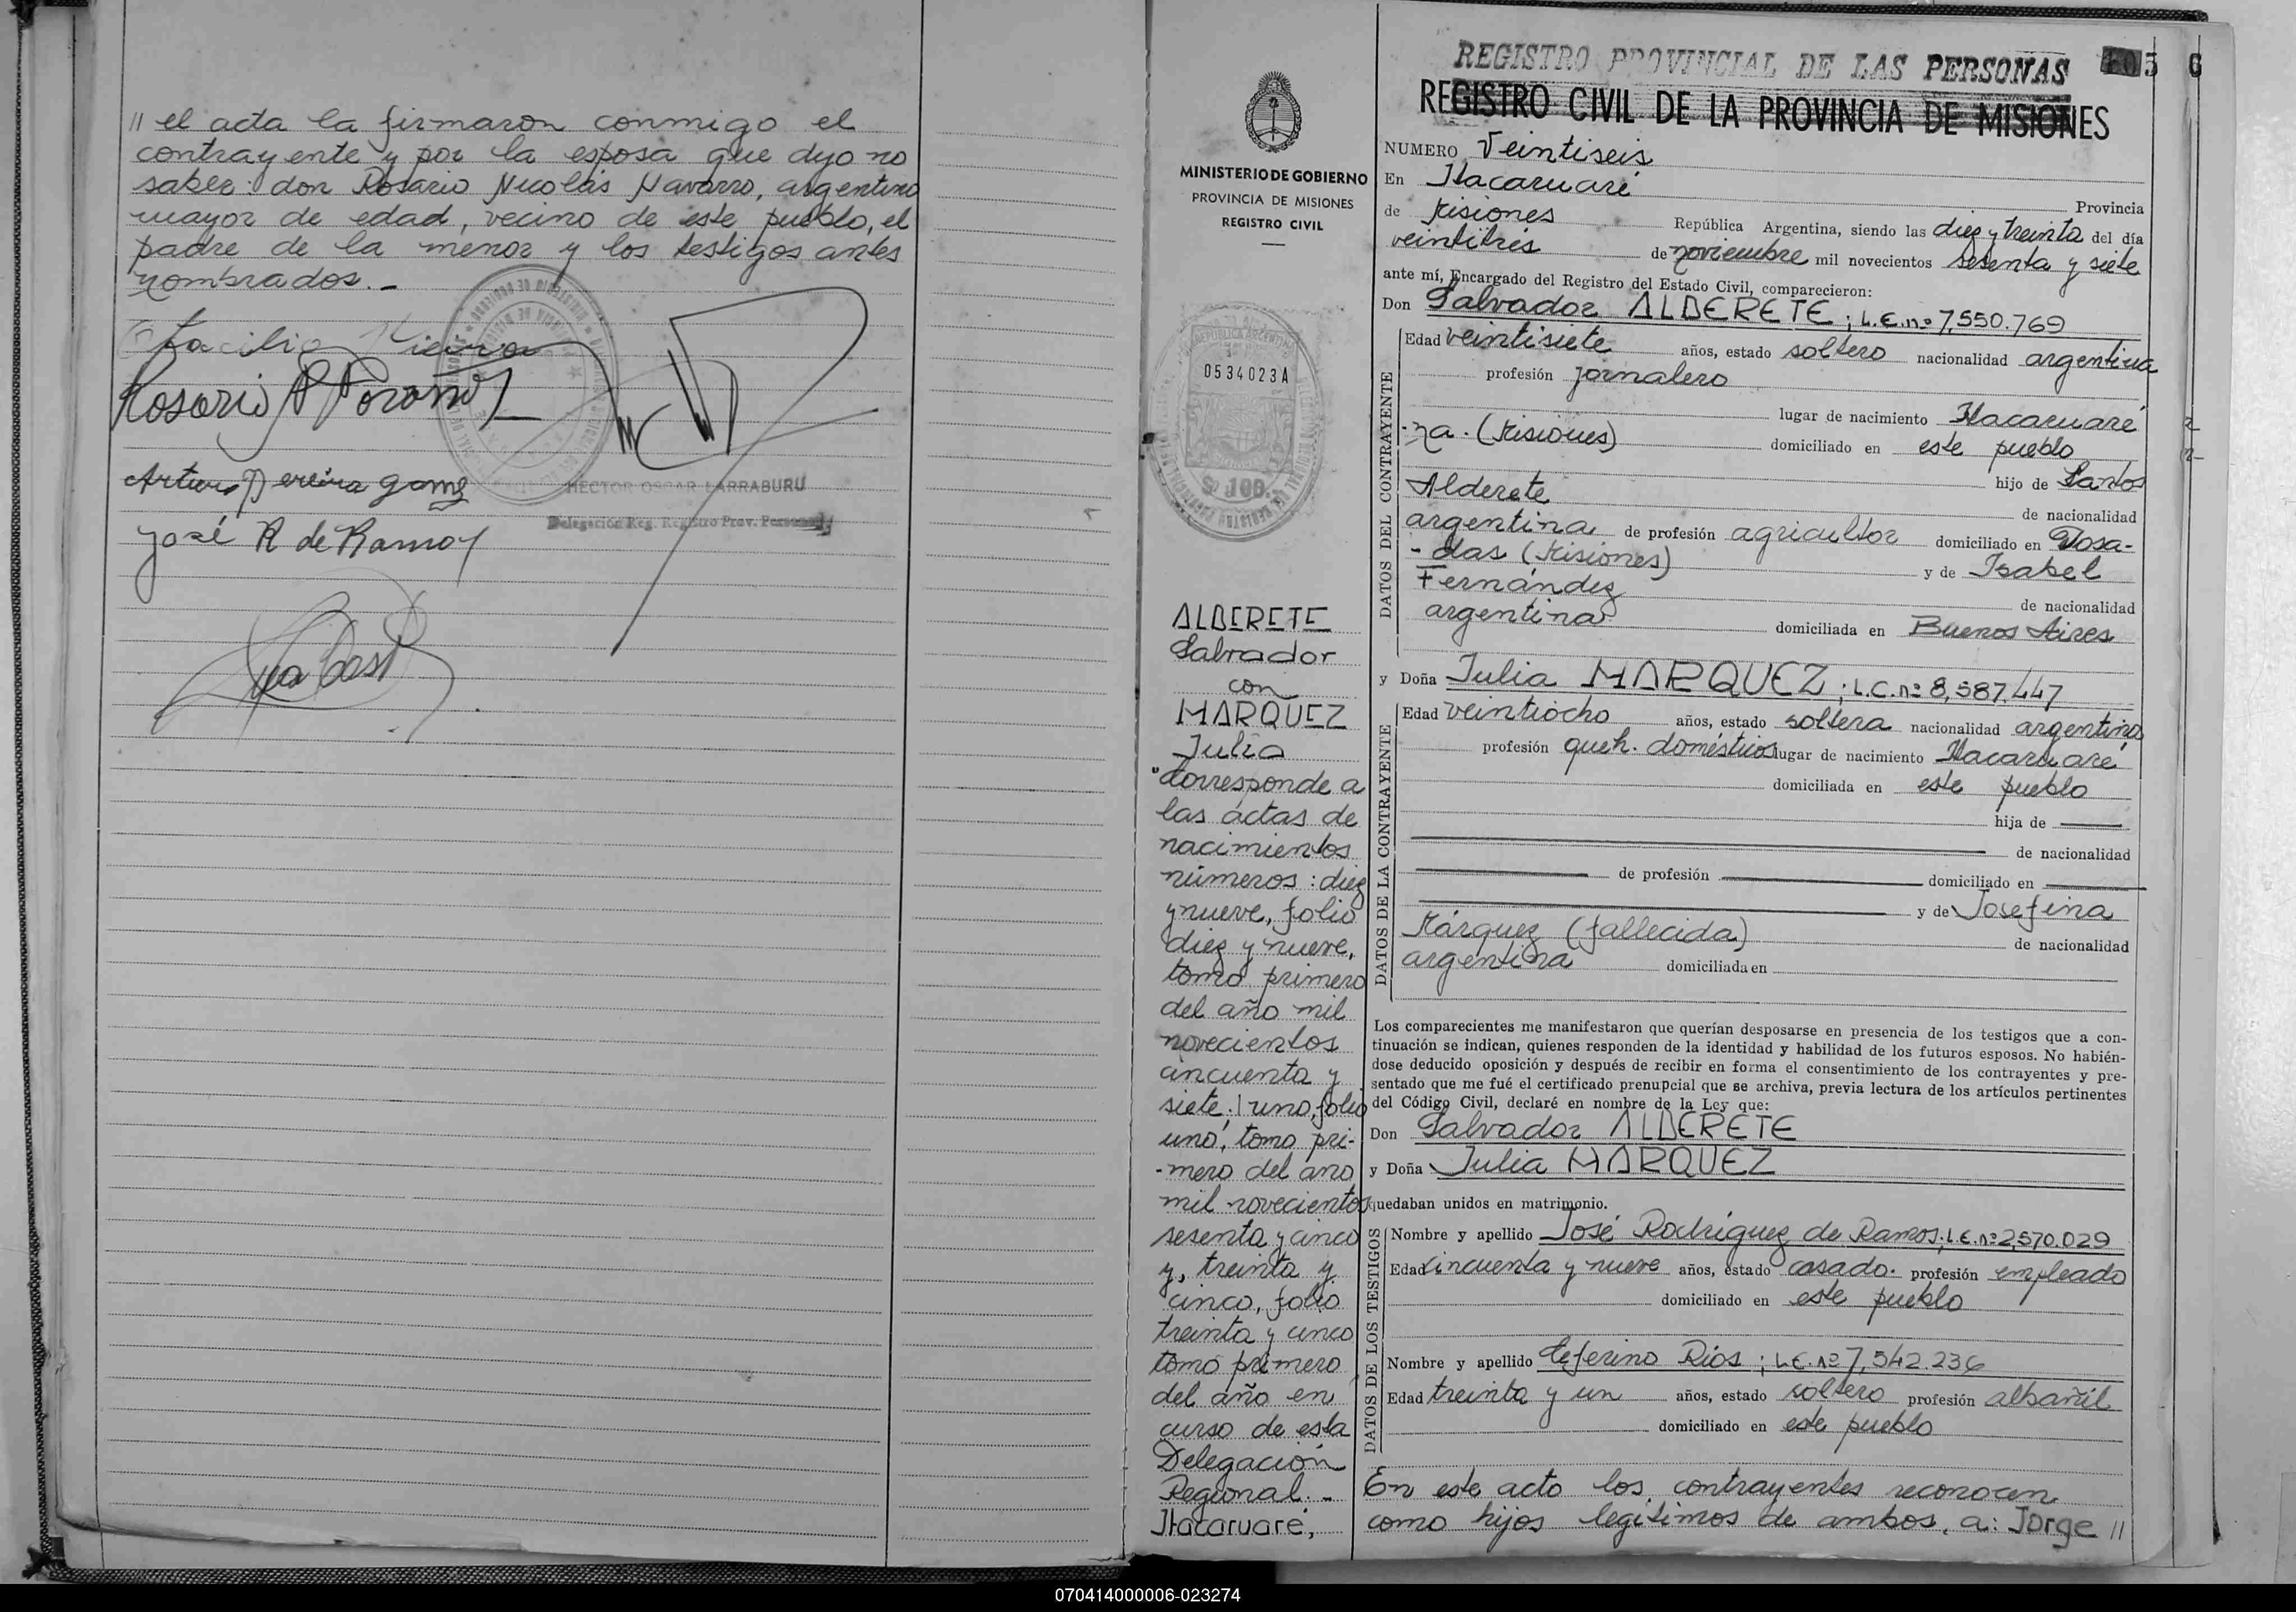 // el acta la firmaron conmigo el
contrayente y por la esposa que dijo no
saber: don Rosario Nicolás Navarro, argentino
mayor de edad, vecino de este pueblo, el
padre de la menor y los testigos antes
nombrados.-
Rosario
Arturo Pereira gomez
HECTOR OSCAR LARRABURU
Delegación Reg. Registro Prov. Personas
José R de Ramos
MINISTERIO DE GOBIERNO
PROVINCIA DE MISIONES
REGISTRO CIVIL
REPUBLICA ARGENTINA
0534023A
$ 100.
ALDERETE
Salvador
con
MARQUEZ
Julia
"Corresponde a
las actas de
nacimientos
números: diez
y nueve, folio
diez y nueve,
tomo primero
del año mil
novecientos
cincuenta y
siete; uno, folio
uno, tomo pri-
-mero del año
mil novecientos
sesenta y cinco
y, treinta y
cinco, folio
treinta y cinco
tomo primero
del año en
curso de esta
Delegación
Regional.-
Itacaruaré,
REGISTRO PROVINCIAL DE LAS PERSONAS
REGISTRO CIVIL DE LA PROVINCIA DE MISIONES
NUMERO Veintiseis
En Itacaruaré
Provincia
de Misiones República Argentina, siendo las diez y treinta del día
veintitrés de noviembre mil novecientos sesenta y siete
ante mí, Encargado del Registro del Estado Civil, comparecieron:
Don Salvador ALDERETE; L.E. nº 7,550.769
DATOS DEL CONTRAYENTE
Edad veintisiete años, estado soltero nacionalidad argentina
profesión jornalero
lugar de nacimiento Itacaruaré
(Misiones) domiciliado en este pueblo
hijo de Santos
Alderete de nacionalidad
argentina de profesión agricultor domiciliado en Posa-
-das (Misiones) y de Isabel
Fernández de nacionalidad
argentina domiciliada en Buenos Aires
y Doña Julia MARQUEZ; L.C. nº 8,587.447
DATOS DE LA CONTRAYENTE
Edad veintiocho años, estado soltera nacionalidad argentina
profesión queh. domésticos lugar de nacimiento Itacaruaré
domiciliada en este pueblo
hija de
de nacionalidad
de profesión domiciliado en
y de Josefina
Márquez (fallecida) de nacionalidad
argentina domiciliada en
Los comparecientes me manifestaron que querían desposarse en presencia de los testigos que a con-
tinuación se indican, quienes responden de la identidad y habilidad de los futuros esposos. No habién-
dose deducido oposición y después de recibir en forma el consentimiento de los contrayentes y pre-
sentado que me fué el certificado prenupcial que se archiva, previa lectura de los artículos pertinentes
del Código Civil, declaré en nombre de la Ley que:
Don Salvador ALDERETE
y Doña Julia MARQUEZ
quedaban unidos en matrimonio.
DATOS DE LOS TESTIGOS
Nombre y apellido José Rodríguez de Ramos; L.E. nº 2,570.029
Edad cincuenta y nueve años, estado casado. profesión empleado
domiciliado en este pueblo
Nombre y apellido Ceferino Rios; L.E. nº 7,542.236
Edad treinta y un años, estado soltero profesión albañil
domiciliado en este pueblo
En este acto los contrayentes reconocen
como hijos legítimos de ambos, a: Jorge //
070414000006-023274